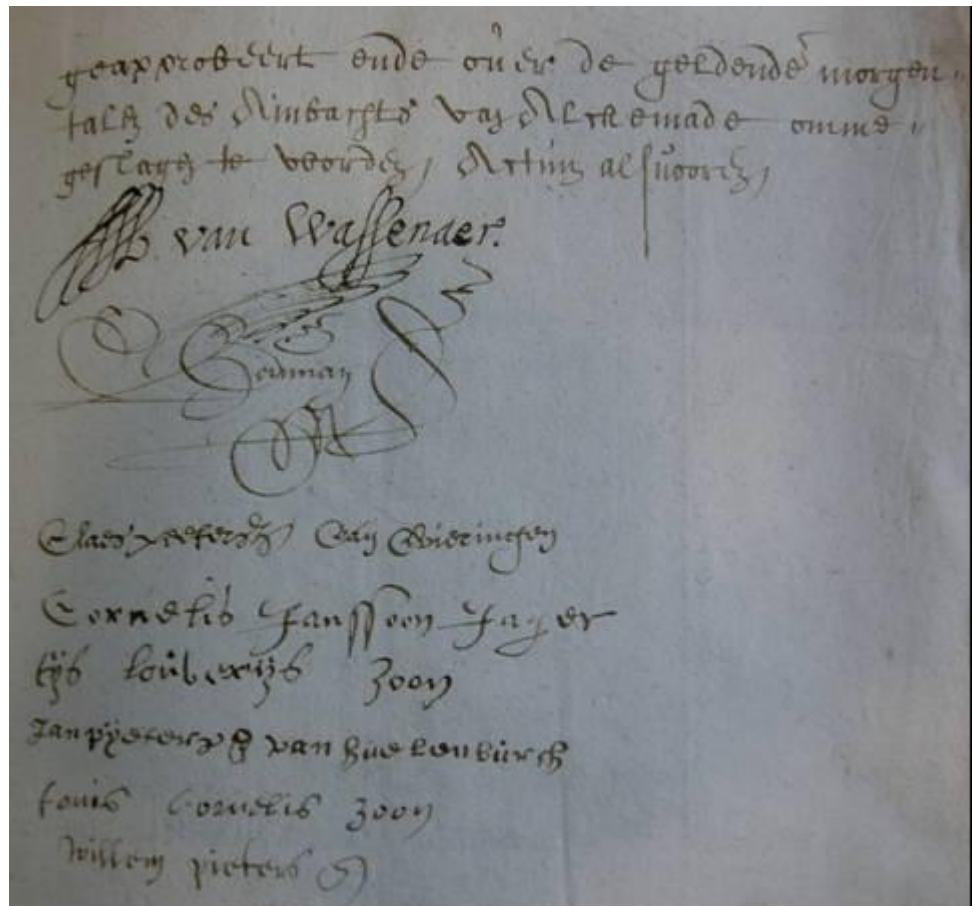 geapprobeert ende over de geldende morgen-
talẽ des Ambachts van Alckemade omme-
geslagẽ te worden, Actum als vooren,
van Wassenaer.
Claes pieters van Wieringen
Cornelis Janssoon Jager
tijs louwerijs zoon
Jan pyeters van huelenburch
tonis Cornelis zoon
Willem pieters